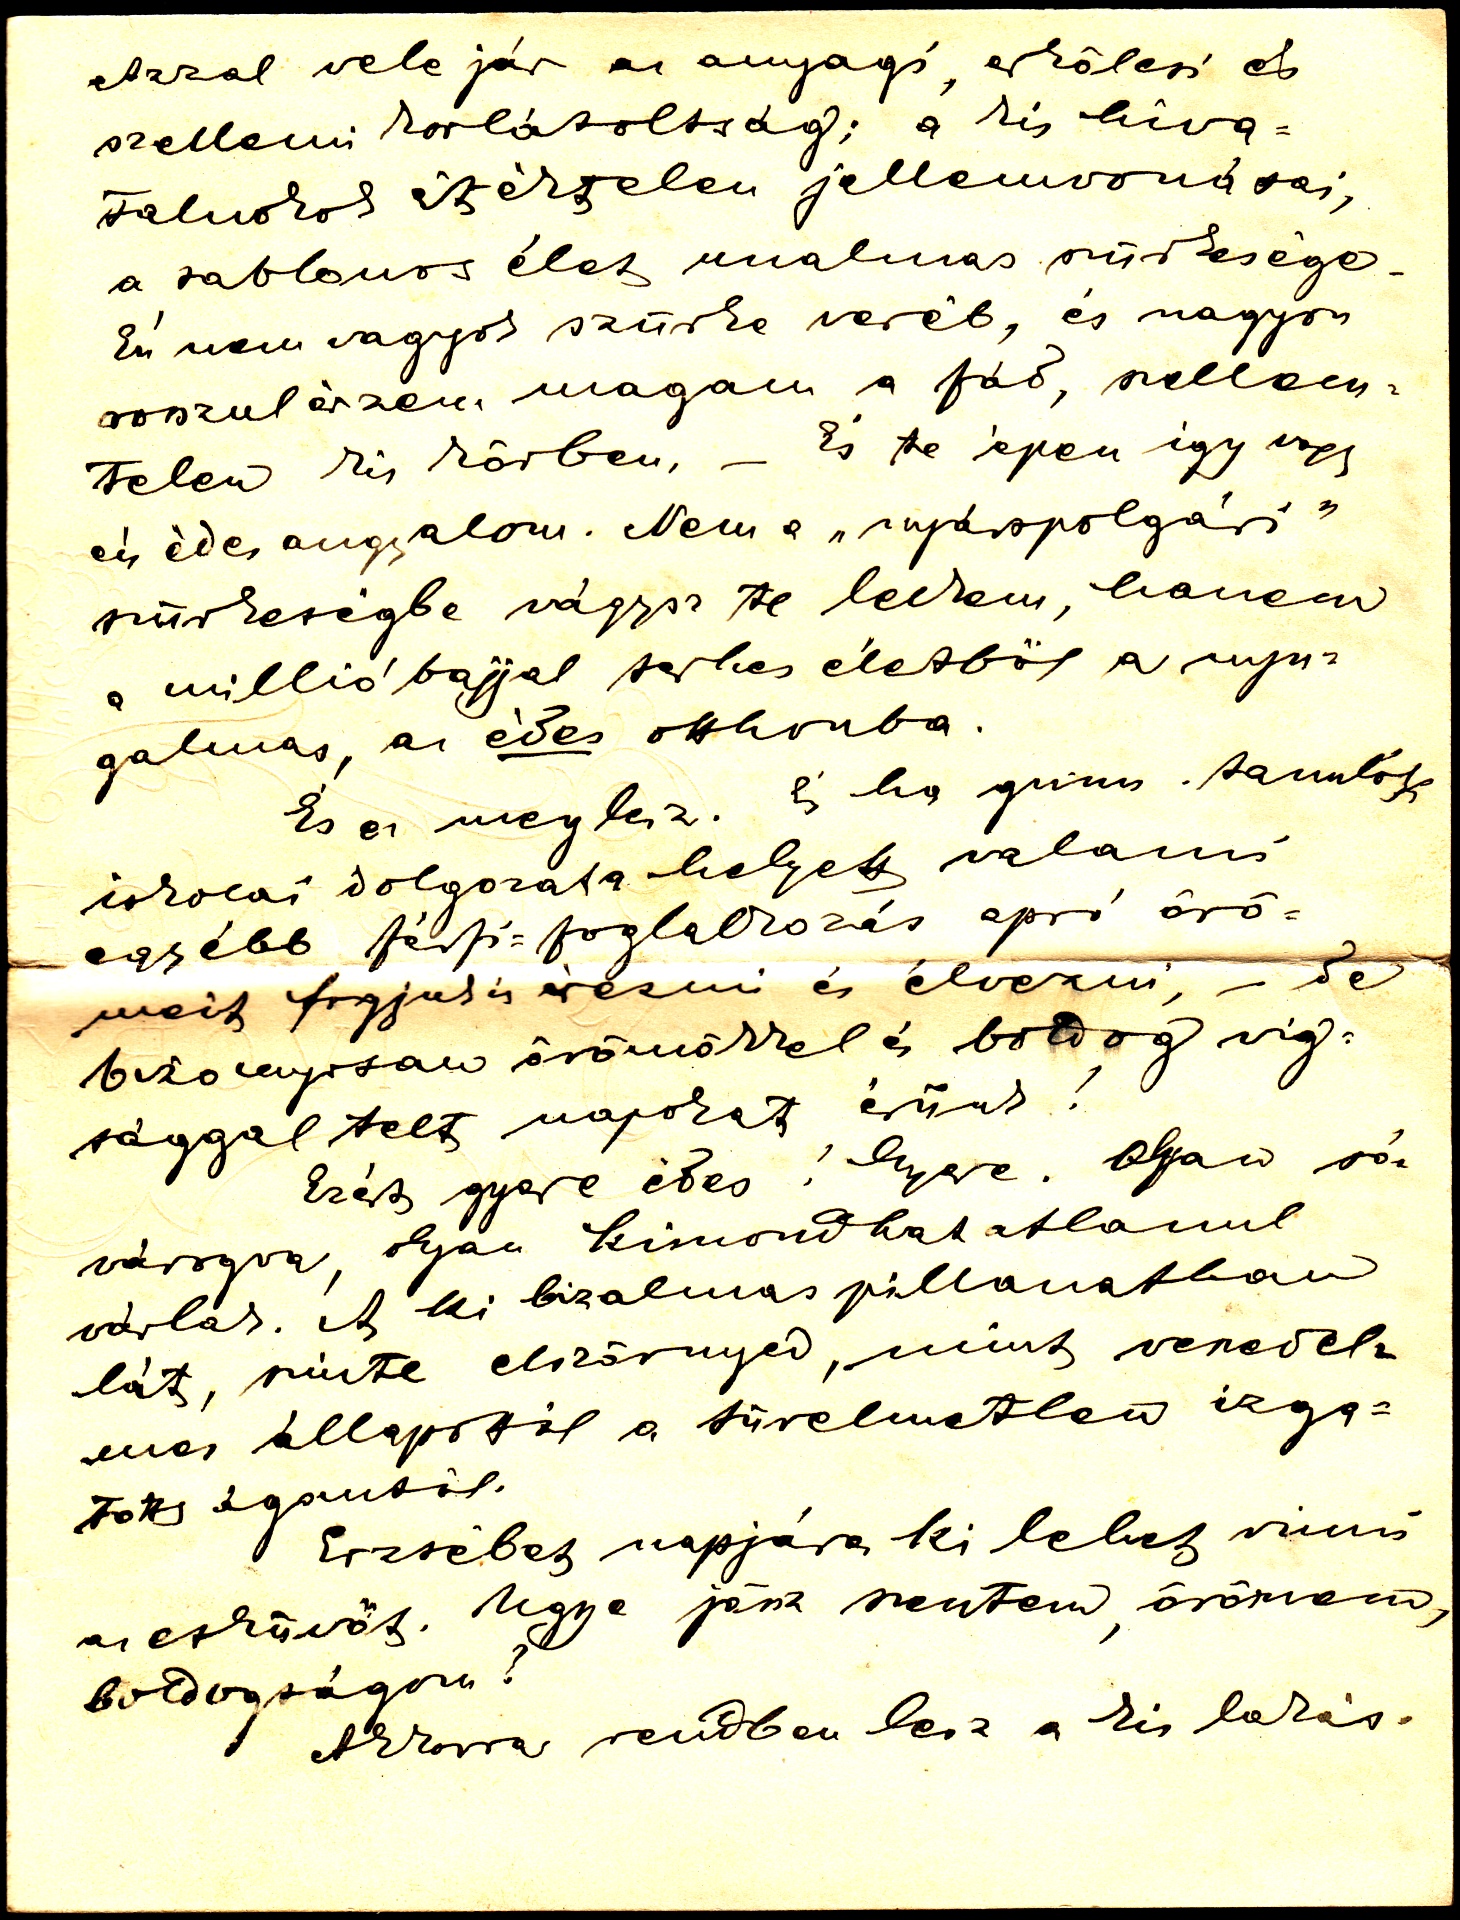 Azzal vele jár az anyagi, erkölcsi és
szellemi korlátoltság; a kis hiva=
talnokok ízértelen jellemvonásai,
a sablonos élet unalmas szürkesége.
Én nem vagyok szürke veréb, és nagyon
rosszul érzem magam a fád, szellem=
telen kis körben. – És te épen így vagy
én édes angyalom. Nem a „nyárspolgári"
szürkeségbe vágysz te lelkem, hanem
a millió bajjal terhes életből a nyu=
galmas, az édes otthonba.
És ez meglesz. És ha gimn. tanulók
iskolai dolgozata helyett valami
egyébb férfi=foglalkozás apró örö=
meit fogjuk is érezni és élvezni, – de
bizonyosan örömökkel és boldog víg=
sággal telt napokat érünk!
Ezért gyere édes! Gyere. Olyan só=
várogva, olyan kimondhatatlanul
várlak. A ki bizalmas pillanatban
lát, szinte elszörnyed, mint veszedel=
mes állapottól a türelmetlen izga=
tott ágantól.
Erzsébet napjára ki lehet vinni
az esküvőt. Ugye jösz szentem, örömem,
boldogságom?
Akkorra rendben lesz a kis lakás.